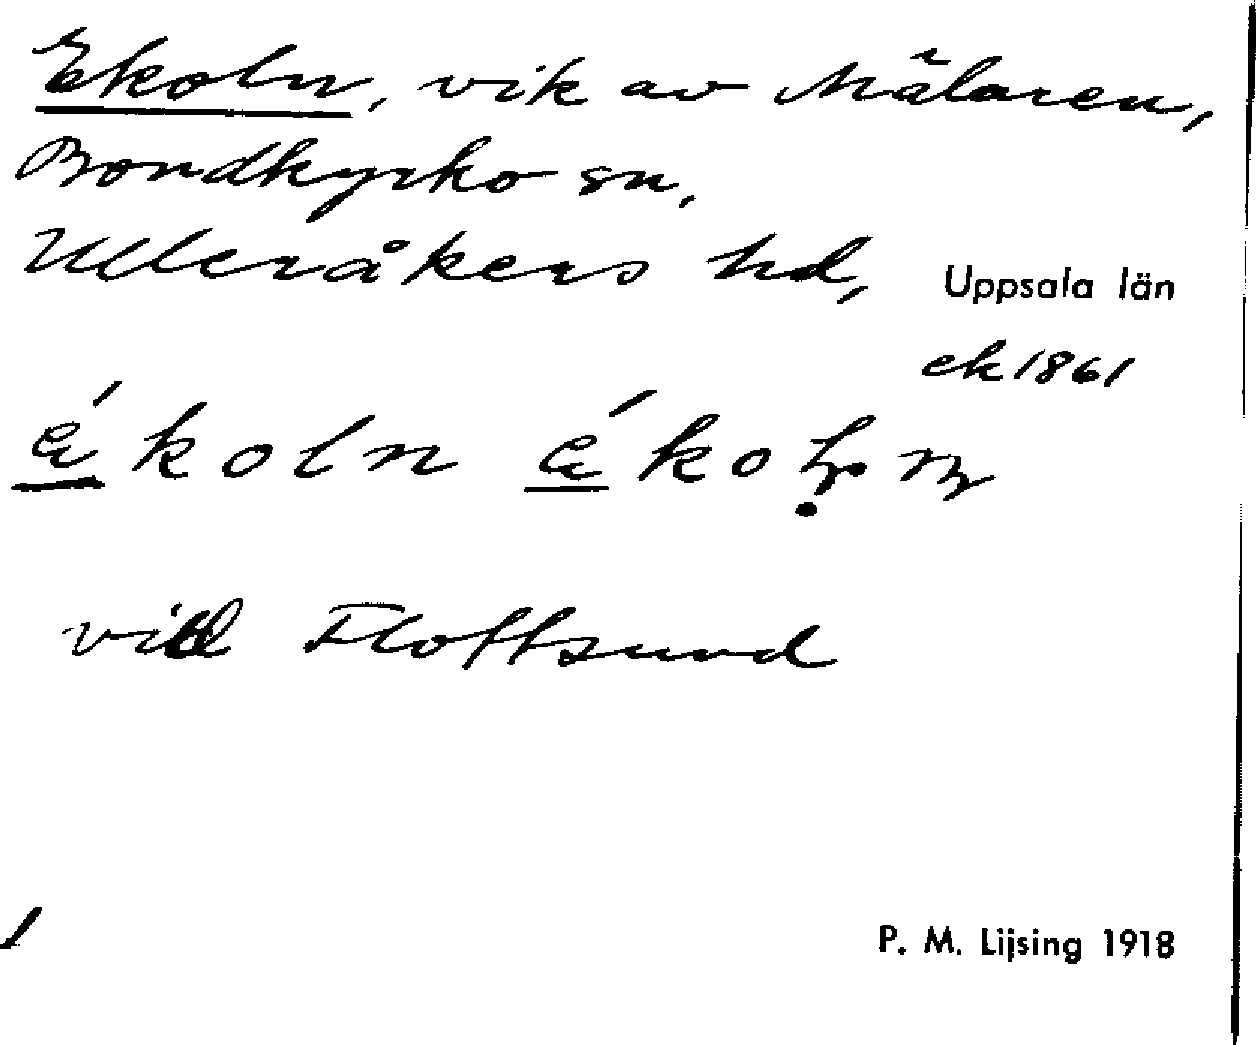 Ekoln, vik av Mälaren,
Bondkyrko sn,
Ulleråkers hd, Uppsala län
ek 1861
é̲koln é̲koḷn
vid Flottsund
P. M. Lijsing 1918